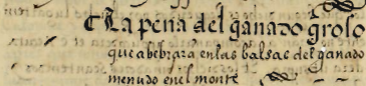 C La pena del ganado groso
que abebrara en las balsas del ganado
menudo en el monte